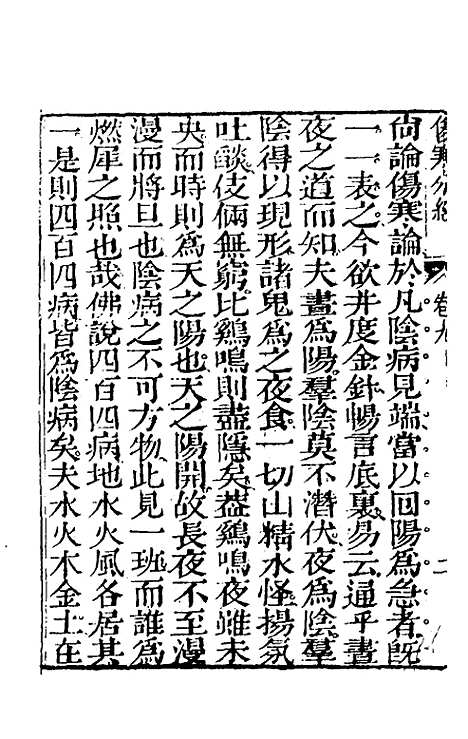 傷寒分經　卷九　二
尙論傷寒論於凡陰病見端當以回陽爲急者旣
一一表之今欲井度金針暢言底裏易云通乎晝
夜之道而知夫晝爲陽羣陰莫不潛伏夜爲陰羣
陰得以現形諸鬼爲之夜食一切山精水怪揚氛
吐燄伎倆無窮比鷄鳴則盡隱矣葢鷄鳴夜雖未
央而時則爲天之陽也天之陽開故長夜不至漫
漫而將旦也陰病之不可方物此見一班而誰爲
燃犀之照也哉佛說四百四病地水火風各居其
一是則四百四病皆爲陰病矣夫水火木金土在